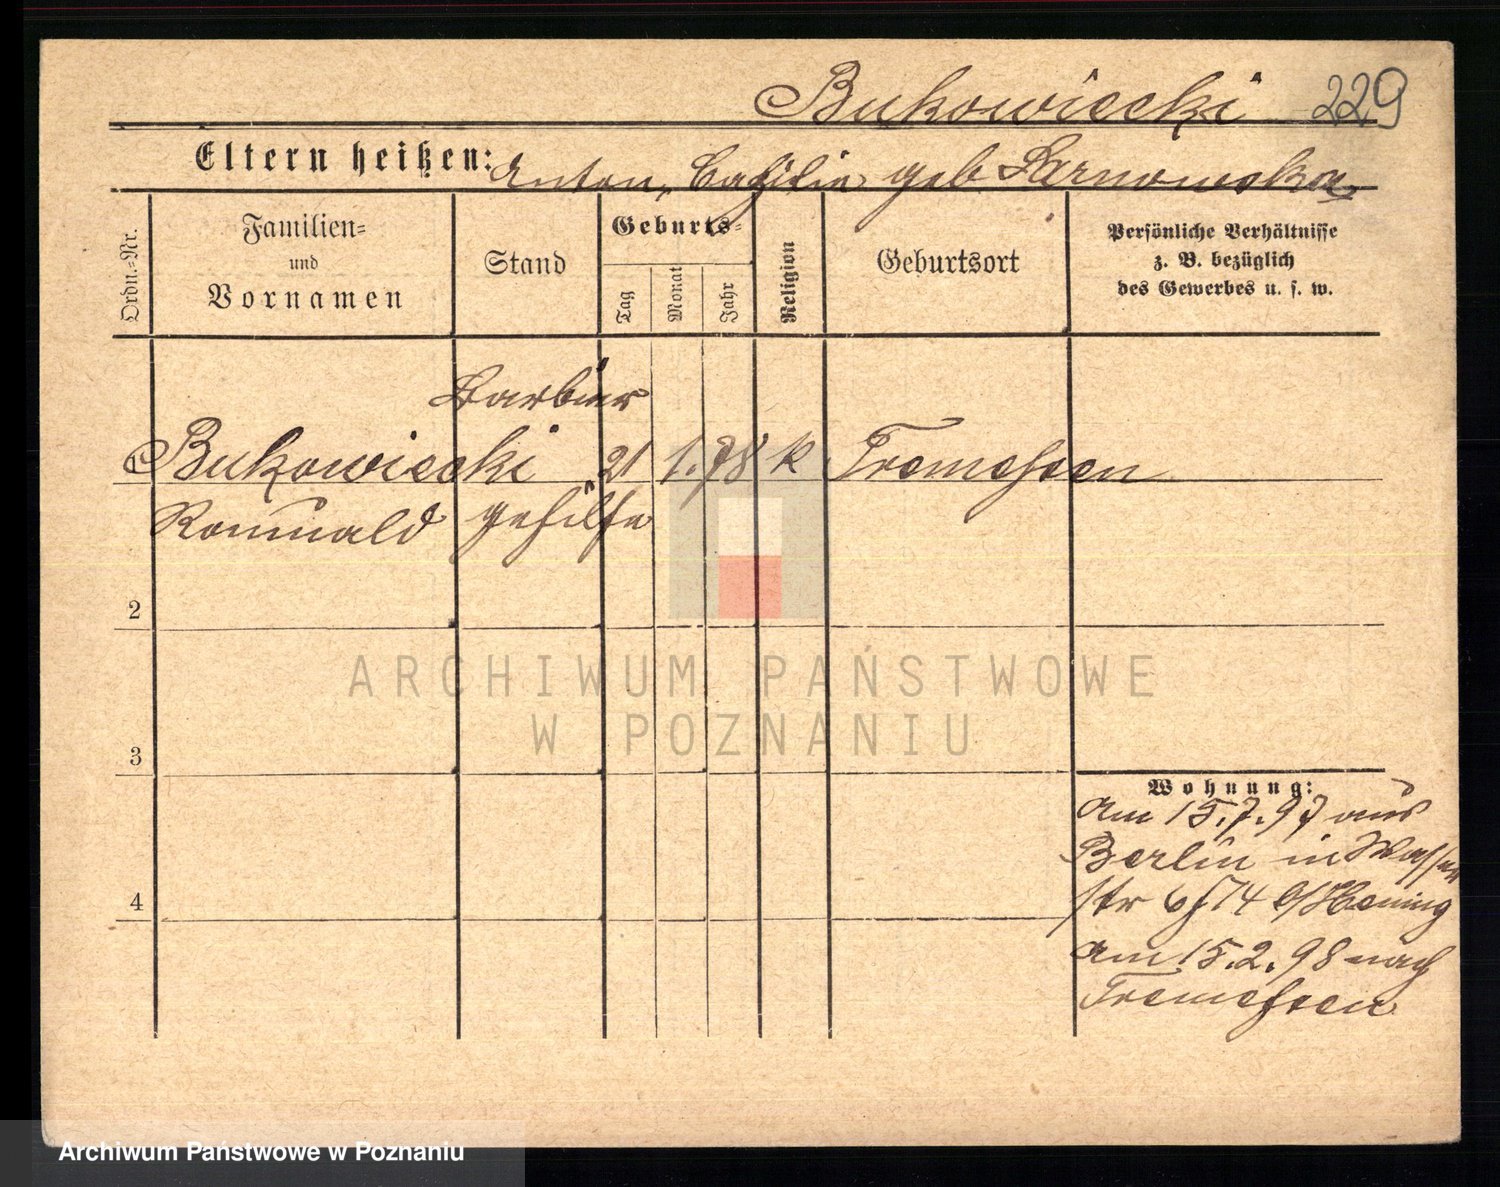 Bukowiecki 229
Eltern heißen: Anton, Cäzilie geb Sarnowska
Ordn.-Nr.
Familien- und Vornamen
Stand
Geburts-
Tag
Monat
Jahr
Religion
Geburtsort
Persönliche Verhältnisse
z. B. bezüglich
des Gewerbes u. s. w.
Barbier
Bukowiecki 21 1. 78 k Tremessen
Romuald gehilfe
2
3
4
Wohnung:
am 15.7.97 aus
Berlin in Wasser
str b/
am 15.2.98 nach
Tremessen
ARCHIWUM PAŃSTWOWE
W POZNANIU
Archiwum Państwowe w Poznaniu